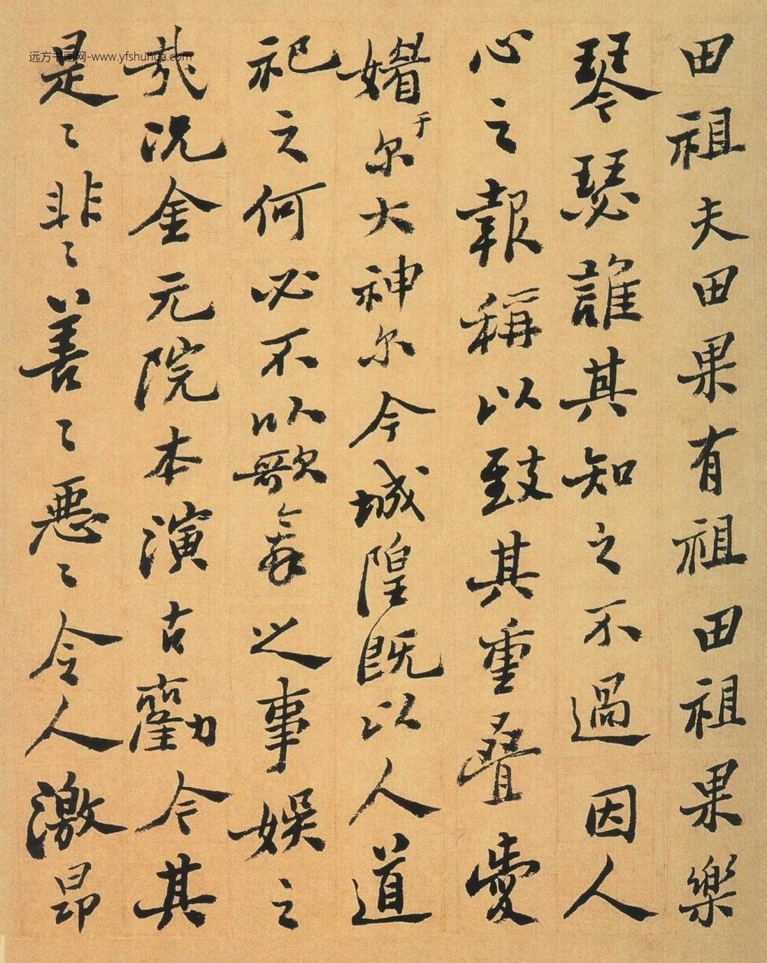 田祖夫田果有祖田祖果樂
琴瑟誰其知之不過因人
心之報稱以致其重疊愛
媚于尔大神尔今城隍既以人道
祀之何必不以歌舞之事娱之
哉况金元院本演古勸今其
是〻非〻善〻惡〻令人激昂
远方书画网-www.yfshuhua.com